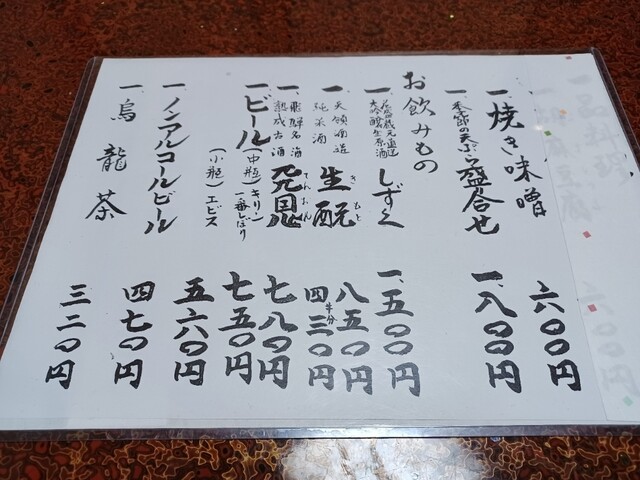 一、焼き味噌 六〇〇円
一、季節の天ぷら盛合せ 一、八〇〇円
お飲みもの
一、蔵元直送
大吟醸生原酒
しずく 一、五〇〇円
一、天領酒造
純米酒
生酛 きもと 八五〇円
半分 四三〇円
一、飛騨名酒
熟成古酒
天恩 てんおん 七八〇円
一、ビール(中瓶)キリン一番しぼり 七五〇円
(小瓶)エビス 五六〇円
一、ノンアルコールビール 四七〇円
一、烏龍茶 三二〇円